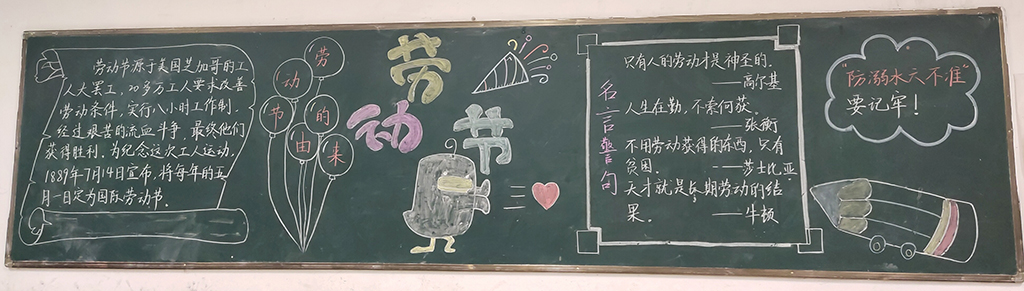 劳动节源于美国芝加哥的工
人大罢工，20多万工人要求改善
劳动条件，实行八小时工作制，
经过艰苦的流血斗争，最终他们
获得胜利，为纪念这次工人运动，
1889年7月14日宣布，将每年的五
月一日定为国际劳动节。
劳动节的由来
劳动节
名言警句
只有人的劳动才是神圣的。
——高尔基
人生在勤，不索何获。
——张衡
不用劳动获得的东西，只有
贫困。——莎士比亚
天才就是长期劳动的结
果。——牛顿
“防溺水六不准”
要记牢！